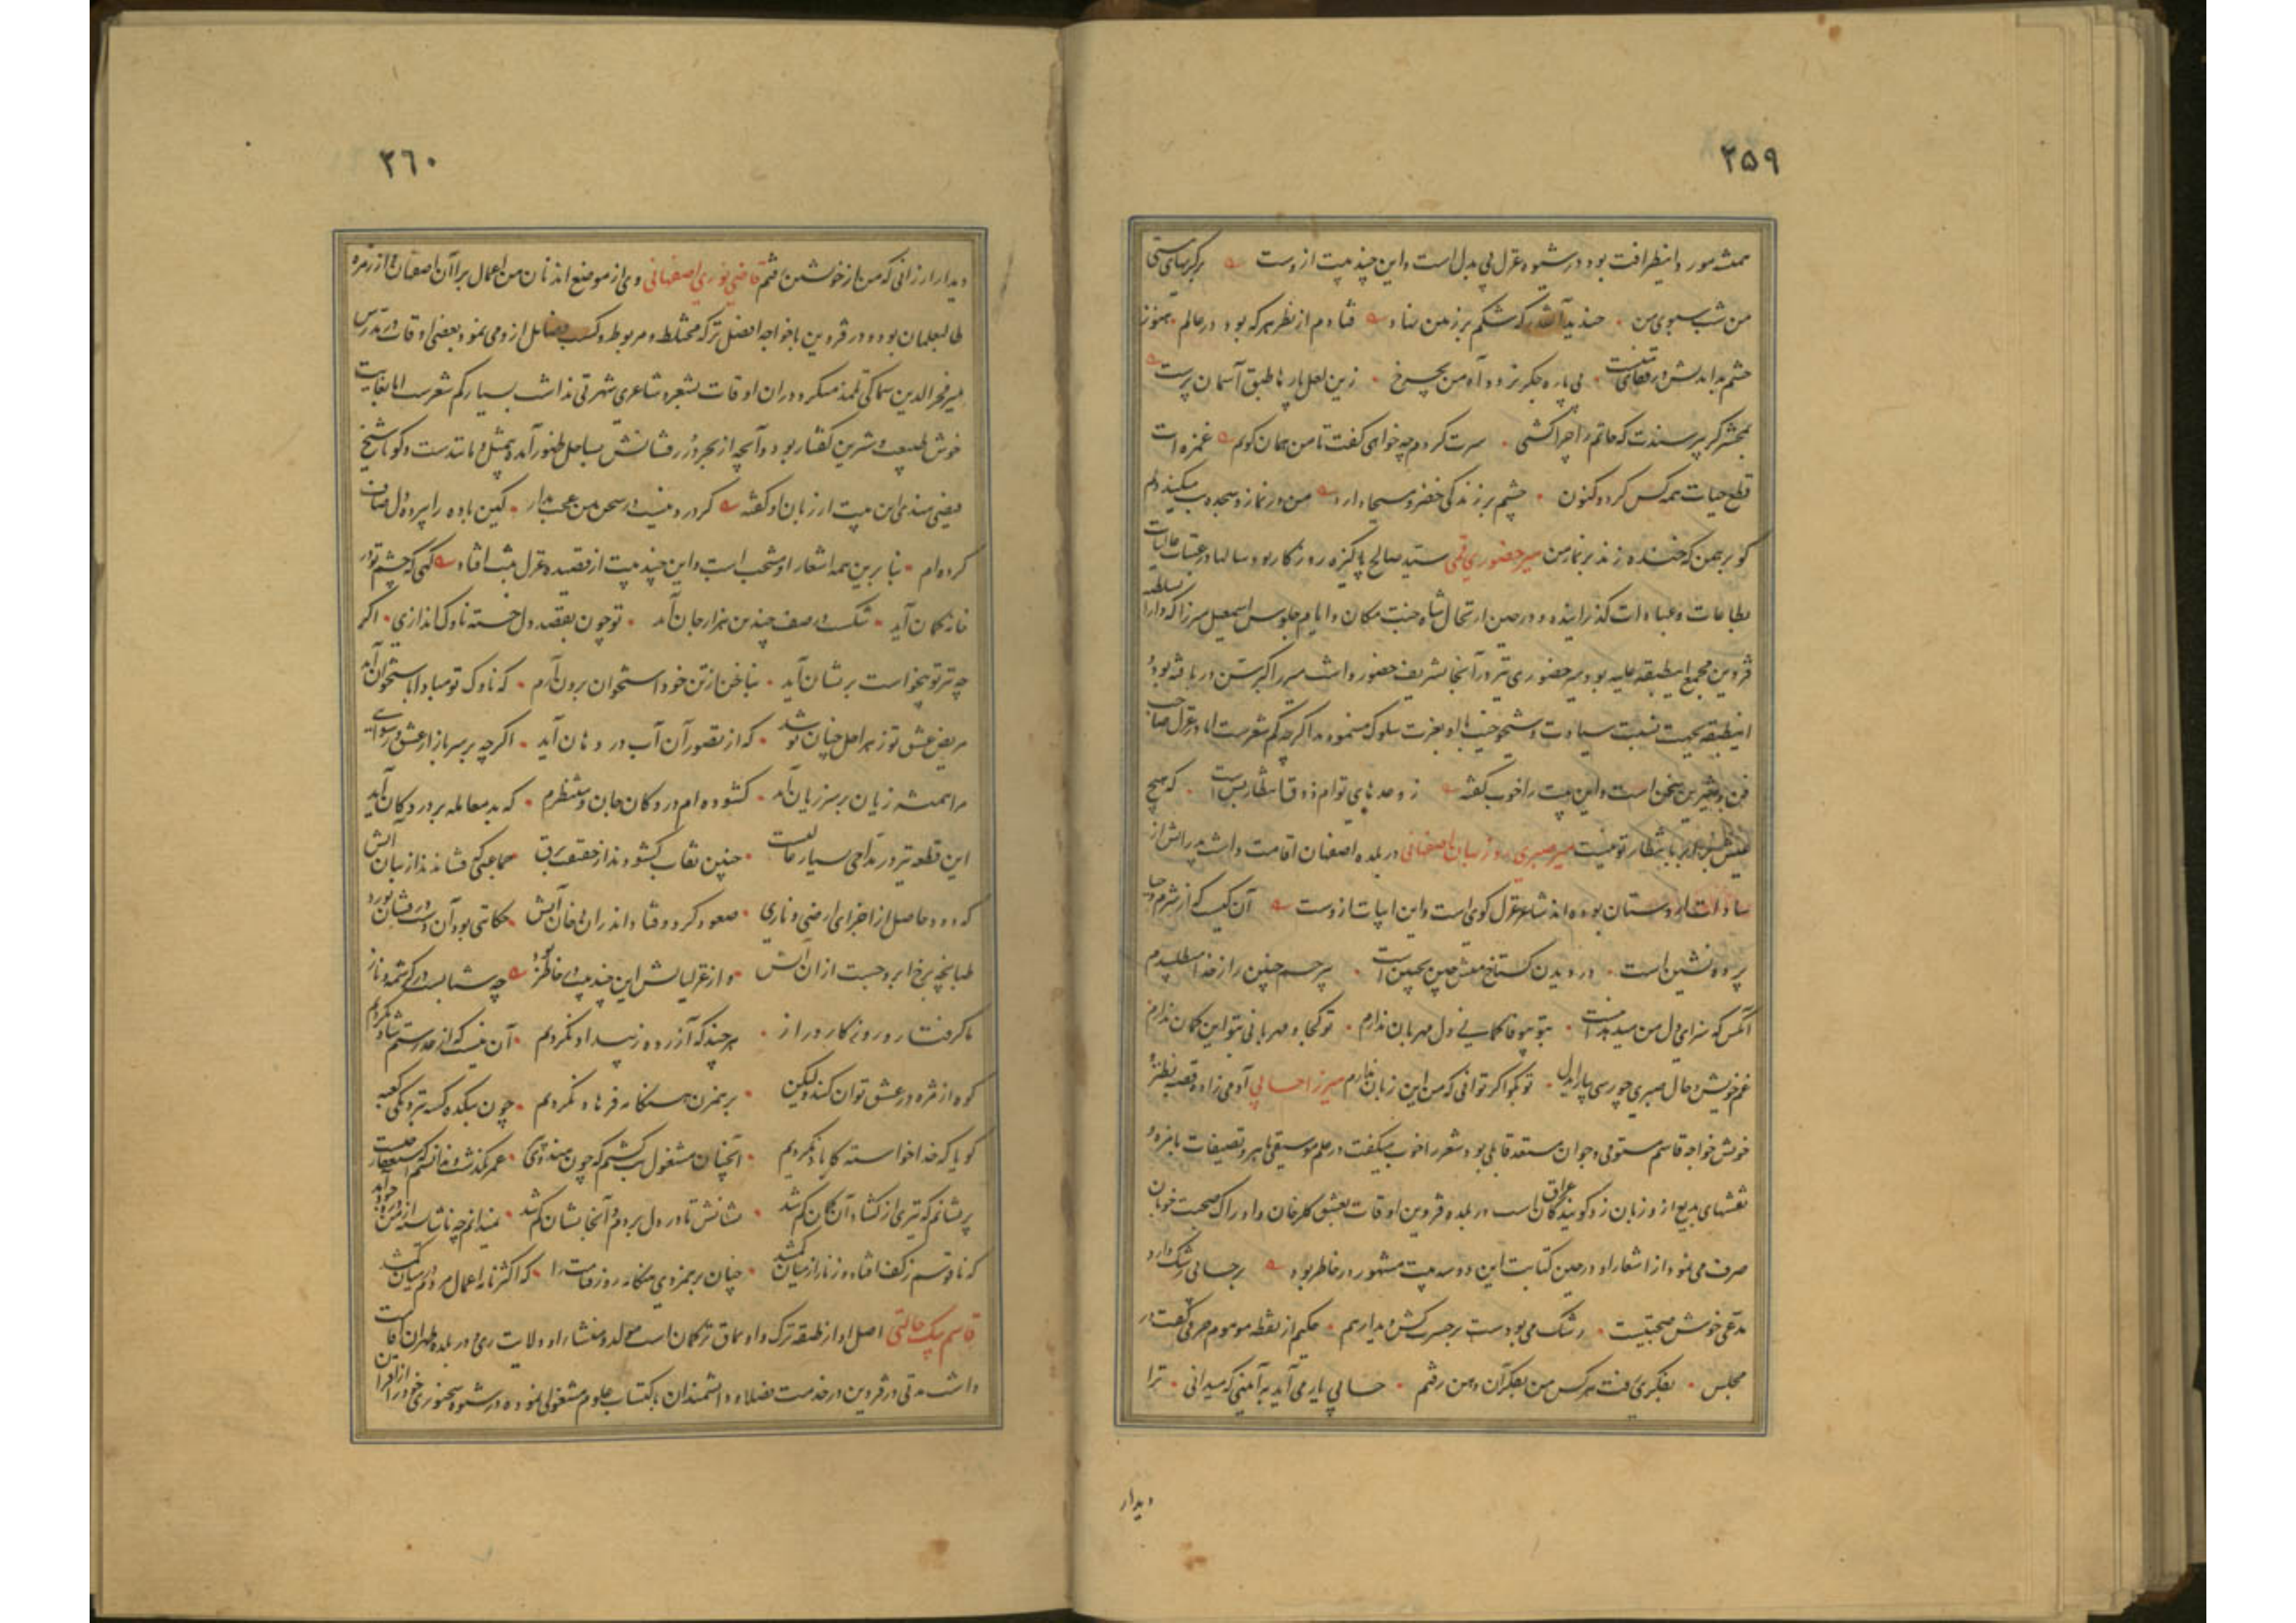 ۲۵۹
من شب سبوی من • خندید آنقدر که شکم بر زمین نهاد فتادم از نظر هر که بود در عالم • هنوز
چشم بد اندیش در قفای منست • بی پاره جگر نزد دود آه من بچرخ • زین لعل پارها طبق آسمان پرست
بمحشر گر بپرسندت که حاتم را چرا کشتی • سرت گردم چه خواهی گفت تا من همان گویم غمزه ات
قطع حیات همه کس کرد و کنون • چشم بر زندگی خضر و مسیحا دارد من در نماز و سجده بت میکند دلم
کو برهمن که خنده زند بر نماز من میر حضوری قمی سید صالح پاکیزه روزگار بود و سالها در عتبات عالیات
بطاعات و عبادات گذرانیده و در حین ارتحال شاه جنت مکان و ایام جلوس اسمعیل میرزا که دار السلطنه
قزوین مجمع این طبقه علیه بود میر حضوری نیز در آنجا شریف حضور داشت
این طبقه بجهت نسبت سیادت و شیخوخیت با او بعزت سلوک مینمودند اگر چه کم شعرست اما در غزل صاحب
فن و شیرین سخن است و این بیت را خوب گفته ز وعدهای توام ذوق انتظار بس است • که هیچ
عیش برابر بانتظار تو نیست میر صبری روز بهان اصفهانی در بلده اصفهان اقامت داشت پدرانش از
سادات اردستان بوده اند شاعر غزل گوی است و این ابیات ازوست آن کیست که از شرم و حیا
پرده نشین است • در دیدن گستاخ منش چین بجبین است • بیرحم چنین را ز خدا میطلبیدم
آنکس که سزای دل من میدهد اینست • بتو بیوفا گمانی ز دل مهربان ندارم • تو کجا و مهربانی بتو این گمان ندارم
غم خویش و حال صبری چو رسی بیار ای دل • تو بگو اگر توانی که من این زبان ندارم میرزا حسابی آدمی زاده قصبه نطنز
خویش خواجه قاسم مستوفی و جوان مستعد قابلی بود شعر را خوب میگفت در علم موسیقی ماهر و تصنیفات بامزه
نقشهای بدیع ازو زبان زد گویندگان عراق است در بلده قزوین اوقات بعشق گلرخان و ادراک صحبت خوبان
صرف می نمود از اشعار او در حین کتابت این دو سه بیت مشهور در خاطر بود بر حسابی رشک دارد
مدعی خوش صحبتیست • رشک می بودست بر حسرت کش دیدار هم • حکیم از نقطه موهوم حرفی گفت در
مجلس • بفکری رفت هر کس من بفکر آن دهن رفتم • حسابی یار می آید به آیینی که میدانی • ترا
دیدار
۲٦۰
دیدار ارزانی که من از خویشتن رفتم قاضی نوری اصفهانی وی از موضع اندنان من اعمال برآان اصفهان و از زمره
طالبعلمان بوده و در قزوین با خواجه افضل ترکه مختلط و مربوط و کسب فضایل ازو می نمود بعضی اوقات در تدریس
میر فخر الدین سماکی تلمذ میکرد در آن اوقات بشعر و شاعری شهرتی نداشت بسیار کم شعرست اما بغایت
خوش طبیعت و شیرین گفتار بود و آنچه از بحر درر فشانش بساحل ظهور آمده بیمثل و مانندست و گویا شیخ
فیضی هندی این بیت از زبان او گفته گر درد نیست در سخن من عجب مدار • کین باده را ز پرده دل صاف
کرده ام • بنابرین همه اشعار او منتخب است و این چند بیت از قصیده و غزل ثبت افتاد گهی که چشم تو در
خانه کمان آید • شکست در صف چندین هزار جان آید • تو چون بقصد دل خسته ناوک اندازی • اگر
چه تیر تو بیخواست بر نشان آید • بناخن از تن خود استخوان برون آرم • که ناوک تو مبادا باستخوان آید
مریض عشق تو زهر اجل چنان نوشد • که از تصور آن آب در دهان آید • اگر چه بر سر بازار عشق و رسوایی
مرا همیشه زیان بر سر زیان آید • گشوده ام در دکان جان و منتظرم • که بد معامله بر در دکان آید
این قطعه نیز در مداحی بسیار عالیست • چنین نقاب گشودند از حقیقت برق • جماعتی که فشانند از بیان آتش
که دود حاصل از اجزای ارضی و ناری • صعود کرد و فتاد اندران دخان آتش • حکایتی بود آن درفشان بود
طپانچه بر رخ ابر و جست ازان آتش • و از غزلیاتش این چند بیت در خاطر بود چه شتابست در کرشمه و ناز
ما گرفتار و روزگار دراز • هر چند که آزرده ز بیداد نگردیم • آن نیست که از هر ستم شاد نگردیم
کوه از مژه در عشق توان کند ولیکن • بر همزن هنگامه فرهاد نگردیم • چون بتکده کس نبرد نام کعبه
گویا که خدا خواسته کاباد نگردیم • آنچنان مشغول بت گشتم که چون هندوی • عمر بگذشت و ندانستم که استغفار چیست
پریشانم که تیری از گشاد آن کمان گم شد • نشانش تا در دل بردم و آنجا نشان گم شد • نمیدانم چه ناشایسته از من در وجود آمد
که ناقوسم ز کف افتاد و زنار از میان گم شد • چنان بر همزدی هنگامه روز قیامت را • که اکثر نامه اعمال مردم در میان گم شد
قاسم بیک حالتی اصل او از طبقه ترک و اویماق ترکمان است مولد و منشاء او ولایت ری و در بلده طهران اقامت
داشت مدتی در قزوین در خدمت فضلا و دانشمندان باکتساب علوم مشغولی نموده در شیوه سخنوری خود را از اقران